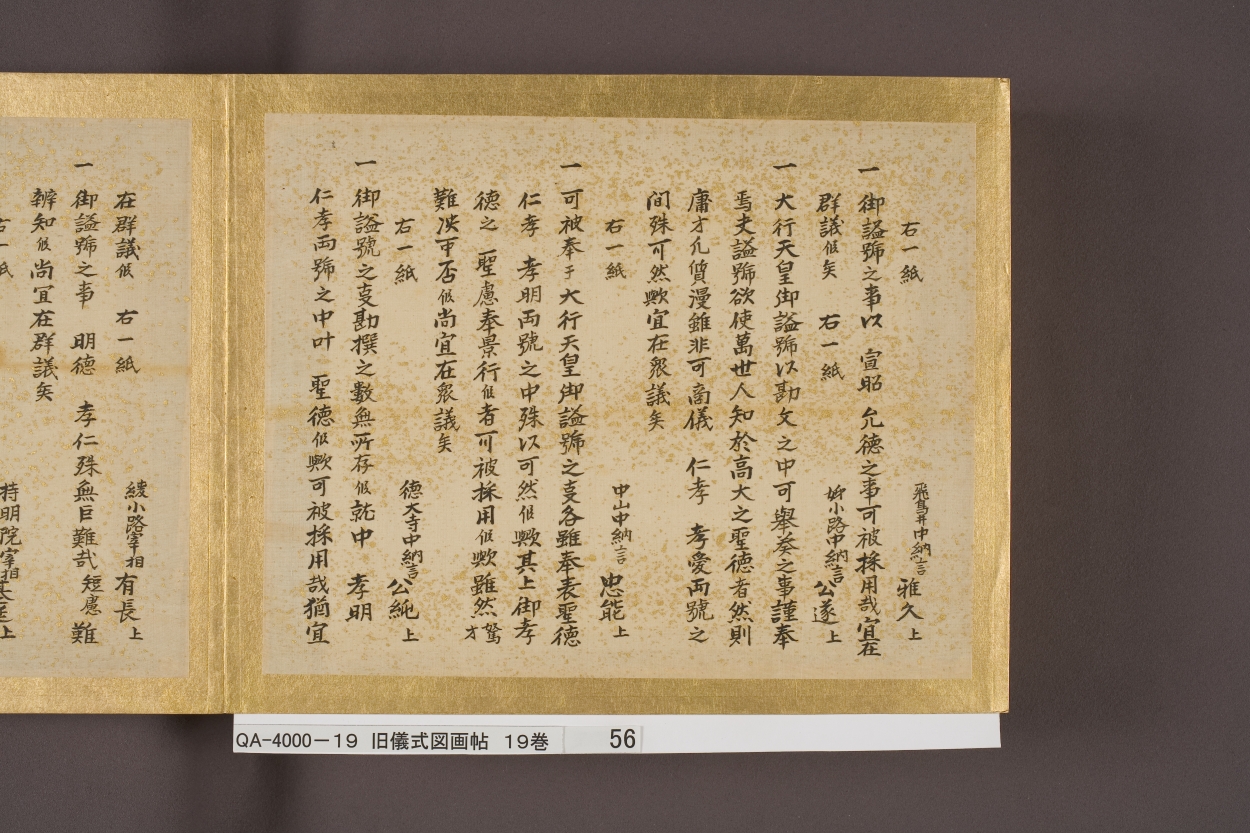 右一紙 飛鳥井中納言 雅久上
一 御諡號之事以 宣昭 允徳之事可被採用哉宜在
群議候矣 右一紙 姉小路中納言 公遂上
一 大行天皇御諡號以勘文之中可舉奏之事謹奉
焉夫諡號欲使萬世人知於高大之聖徳者然則
庸才凡質漫雖非可商儀 仁孝 孝愛両號之
間殊可然歟宜在衆議矣
右一紙 中山中納言 忠能上
一 可被奉于大行天皇御諡號之㕝各雖奉表聖徳
仁孝 孝明両號之中殊以可然候歟其上御孝
徳之 聖慮奉景行候者可被採用候歟雖然駑才
難决可否候尚宜在衆議矣
右一紙 徳大寺中納言 公純上
一 御諡號之㕝勘撰之數無所存候就中 孝明
仁孝両號之中叶 聖徳候歟可被採用哉猶宜
在群議候 右一紙 綾小路宰相 有長上
一 御諡號之事 明徳 孝仁殊無巨難哉短慮難
辨知候尚宜在群議矣
右一紙 持明院宰相 上
QA-4000-19 旧儀式図画帖 19巻 56